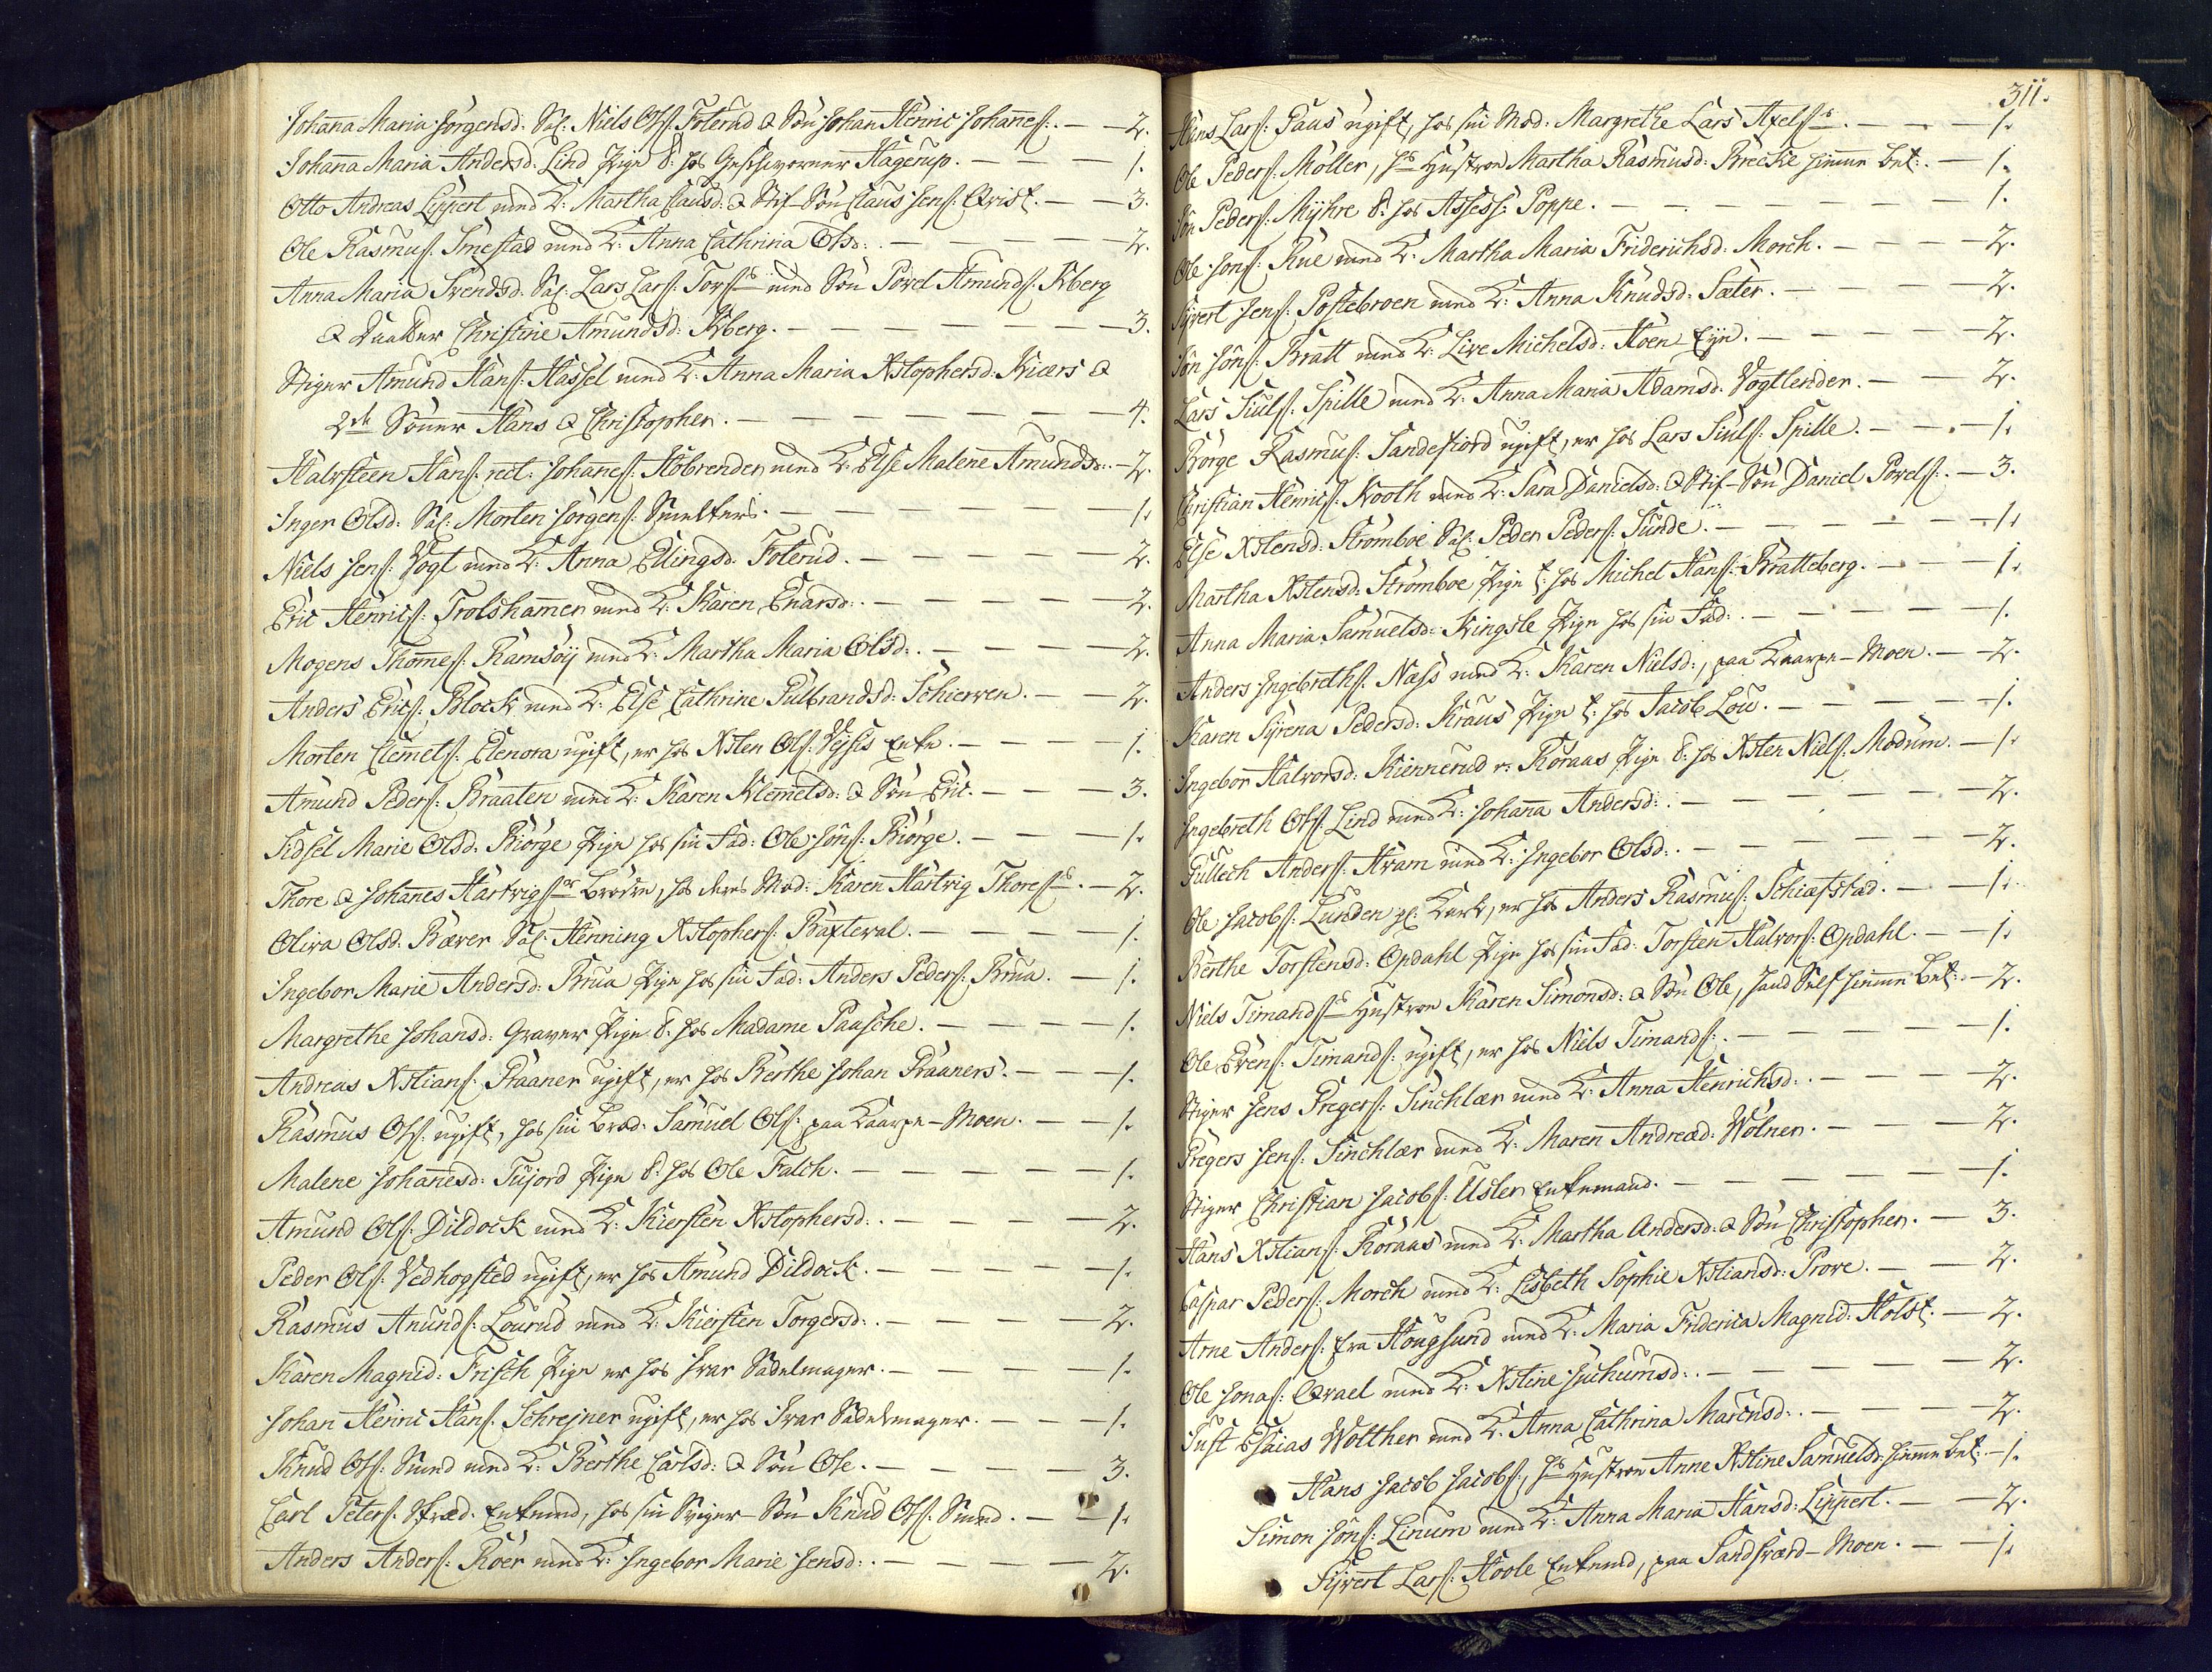 Johana Maria Jörgensd: Sal: Niels Ols: Foterud & Sön Johan Henric Johanes:. — 2.
Johana Maria Andersd: Lind Pige t: hos Geschworner Hagerup. — 1.
Otto Andreas Lippert med K: Martha Clausd: & Stif-Sön Claus Jens: Qvist. — 3.
Ole Rasmus: Smestad med K: Anna Cathrina Olsd:. — 2.
Anna Maria Svendsd: Sal: Lars Lars: Tors: med Sön Povel Amunds: Kberg
& Daatter Christine Amundsd: Kberg. — 3.
Stiger Amund Hans: Hassel med K: Anna Maria Xstophersd: Kiærs &
2de Sönner Hans & Christopher. — 4.
Halvsteen Hans: rect: Johanes: Hobrenden med K: Else Malene Amundsd:. — 2.
Inger Olsd: Sal: Morten Jörgens: Smelters. — 1.
Niels Jens: Vogt med K: Anna Ellingsd: Foterud. — 2.
Eric Henrics: Trolshamer med K: Karen Enarsd:. — 2.
Mogens Thomes: Ramsöÿ med K: Martha Maria Olsd:. — 2.
Anders Erics: Block med K: Else Cathrine Gulbrandsd: Schierven. — 2.
Morten Clemets: Elenora ugift, er hos Xsten Ols: Vejsis Enke. — 1.
Amund Peders: Braaten med K: Karen Klemetsd: & Sön Eric. — 3.
Sidsel Marie Olsd: Biörge Pige hos sin Fad: Ole Jöns: Biörge. — 1.
Thore & Johannes Hartvigs: Brödre, hos deres Mod: Karen Hartvig Thores:. — 2.
Oliva Olsd: Bæver Sal: Henning Xstophers: Baxteval. — 1.
Ingebor Marie Andersd: Brua Pige hos sin Fad: Anders Peders: Brua. — 1.
Margrethe Johansd: Graver Pige t: hos Madame Paasche. — 1.
Andreas Xstians: Praaner ugift, er hos Berthe Johan Praaners. — 1.
Rasmus Ols: ugift, hos sin Brod: Samuel Ols: paa Kaarpe-Moen. — 1.
Malene Johanesd: Tujord Pige t: hos Ole Falch. — 1.
Amund Ols: Dildock med K: Kiersten Xstophersd:. — 2.
Peder Ols: Vedhogsted ugift, er hos Amund Dildock. — 1.
Rasmus Anunds: Lourud med K: Kiersten Torgersd:. — 2.
Karen Magnid: Frisch Pige er hos Ivar Sadelmager. — 1.
Johan Henric Hans: Schrejner ugift, er hos Ivar Sadelmager. — 1.
Knud Ols: Smed med K: Berthe Carlsd: & Sön Ole. — 3.
Carl Peters: Skræd: Enkemd, hos sin Sviger-Sön Knud Ols: Smed. — 1.
Anders Anders: Roer med K: Ingebor Marie Jensd:. — 2.
311.
Hans Lars: Paus ugift, hos sin Mod: Margrethe Lars Axels:. — 1.
Ole Peders: Möller, hs Hustroe Martha Rasmusd: Brecke hieme bet:. — 1.
Jön Peders: Mÿhre t: hos Assess: Poppe. — 1.
Ole Jons: Rue med K: Martha Maria Friderichsd: Morch. — 2.
Sÿvert Jens: Postebroen med K: Anna Knudsd: Sæter. — 2.
Jön Jöns: Bratt med K: Live Michelsd: Hoen-Eye. — 2.
Lars Siuls: Spille med K: Anna Maria Adamsd: Vogtlender. — 2.
Börge Rasmus: Sandefiord ugift, er hos Lars Siuls: Spille. — 1.
Christian Henrics: Kooth med K: Sara Danielsd: & Stif-Sön Daniel Povels:. — 3.
Else Xstensd: Stromboe Sal: Peder Peders: Sunde. — 1.
Martha Xstensd: Stromboe Pige t: hos Michel Hans: Bratteberg. — 1.
Anna Maria Samuelsd: Kingsle Pige hos sin Fad:. — 1.
Anders Ingebreths: Næss med K: Karen Nielsd:, paa Kaarpe-Moen. — 2.
Karen Sÿrena Pedersd: Kraus Pige t: hos Jacob Lou. — 1.
Ingebor Halvorsd: Kiennerud v: Roraas Pige t: hos Xsten Niels: Modum. — 1.
Ingebreth Ols: Lind med K: Johana Andersd:. — 2.
Gullech Anders: Kvam med K: Ingebor Olsd:. — 2.
Ole Jacobs: Lunden gl: Karl, er hos Anders Rasmus: Schiæfstad. — 1.
Berthe Torstensd: Opdahl Pige hos sin Fad: Torsten Halvors: Opdahl. — 1.
Niels Timands: Hustroe Karen Simonsd: & Sön Ole, hand Self hieme bet:. — 2.
Ole Evens: Timands: ugift, er hos Niels Timands:. — 1.
Stiger Jens Gregers: Sinchlær med K: Anna Henrichsd:. — 2.
Gregers Jens: Sinchlær med K: Maren Andread: Wölner. — 2.
Stiger Christian Jacobs: Usler Enkemand. — 1.
Hans Xstians: Roraas med K: Martha Andersd: & Sön Christopher. — 3.
Caspar Peders: Morch med K: Lisbeth Sophie Xstiansd: Prove. — 2.
Arne Anders: fra Hougsund med K: Maria Friderica Magnid: Holst. — 2.
Ole Jonas: Qvael med K: Xstine Juchumsd:. — 2.
Just Esaias Wolther med K: Anna Cathrina Marcusd:. — 2.
Hans Jacob Jacobs:, hs Hustroe Anne Xstine Samuelsd: hieme bet:. — 1.
Simon Jöns: Linum med K: Anna Maria Hansd: Lippert. — 2.
Sÿvert Lars: Hoole Enkemd, paa Sandsværd-Moen. — 1.